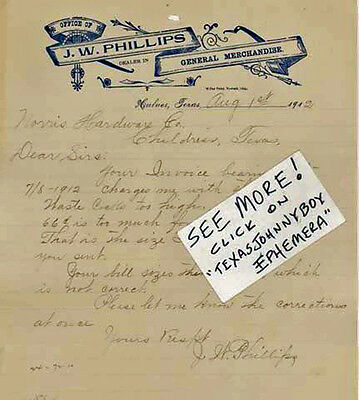 OFFICE OF
J. W. PHILLIPS
DEALER IN
GENERAL MERCHANDISE.
Texas, Aug 1st 1912
Norris Hardware Co.
Childress, Texas,
Dear Sirs:
Your Invoice
7/8-1912 Charges me with
Waste
66¢ is too much
That is the size
you sent.
Your bill sizes which
is not correct.
Please let me know the corrections
at once
Yours Respt
J. W. Phillips
SEE MORE!
CLICK ON
"TEXASJOHNNYBOY
EPHEMERA"